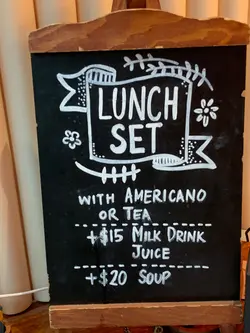 LUNCH
SET
WITH AMERICANO
OR TEA
+$15 MILK DRINK
JUICE
+$20 SOUP